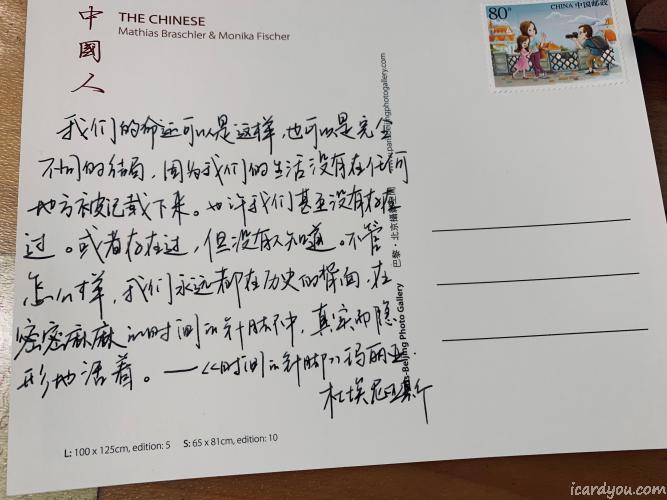 中國人
THE CHINESE
Mathias Braschler & Monika Fischer
80分
CHINA 中国邮政
我们的命运可以是这样，也可以是完全
不同的结局，因为我们的生活没有在任何
地方被记载下来。也许我们甚至没有存在
过。或者存在过，但没有人知道。不管
怎么样，我们永远都在历史的背面，在
密密麻麻的时间的针脚中，真实而隐
形地活着。——《时间的针脚》玛丽亚·
杜埃尼亚斯
L: 100 x 125cm, edition: 5 S: 65 x 81cm, edition: 10
巴黎·北京
-Beijing Photo Gallery
beijingphotogallery.com
icardyou.com